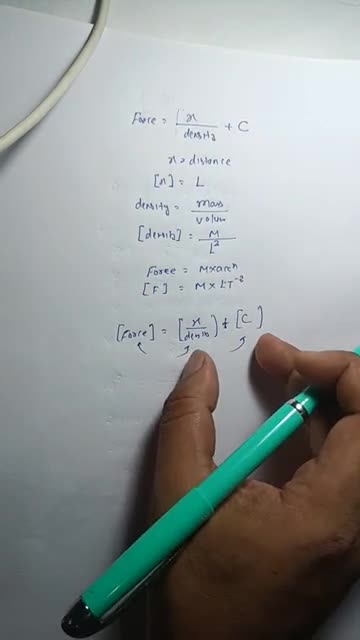 Force = x / density + C
x = distance
[x] = L
density = mass / volum
[densib] = M / L²
Force = M×accn
[F] = M × LT⁻²
[Force] = [x / densib] + [C]